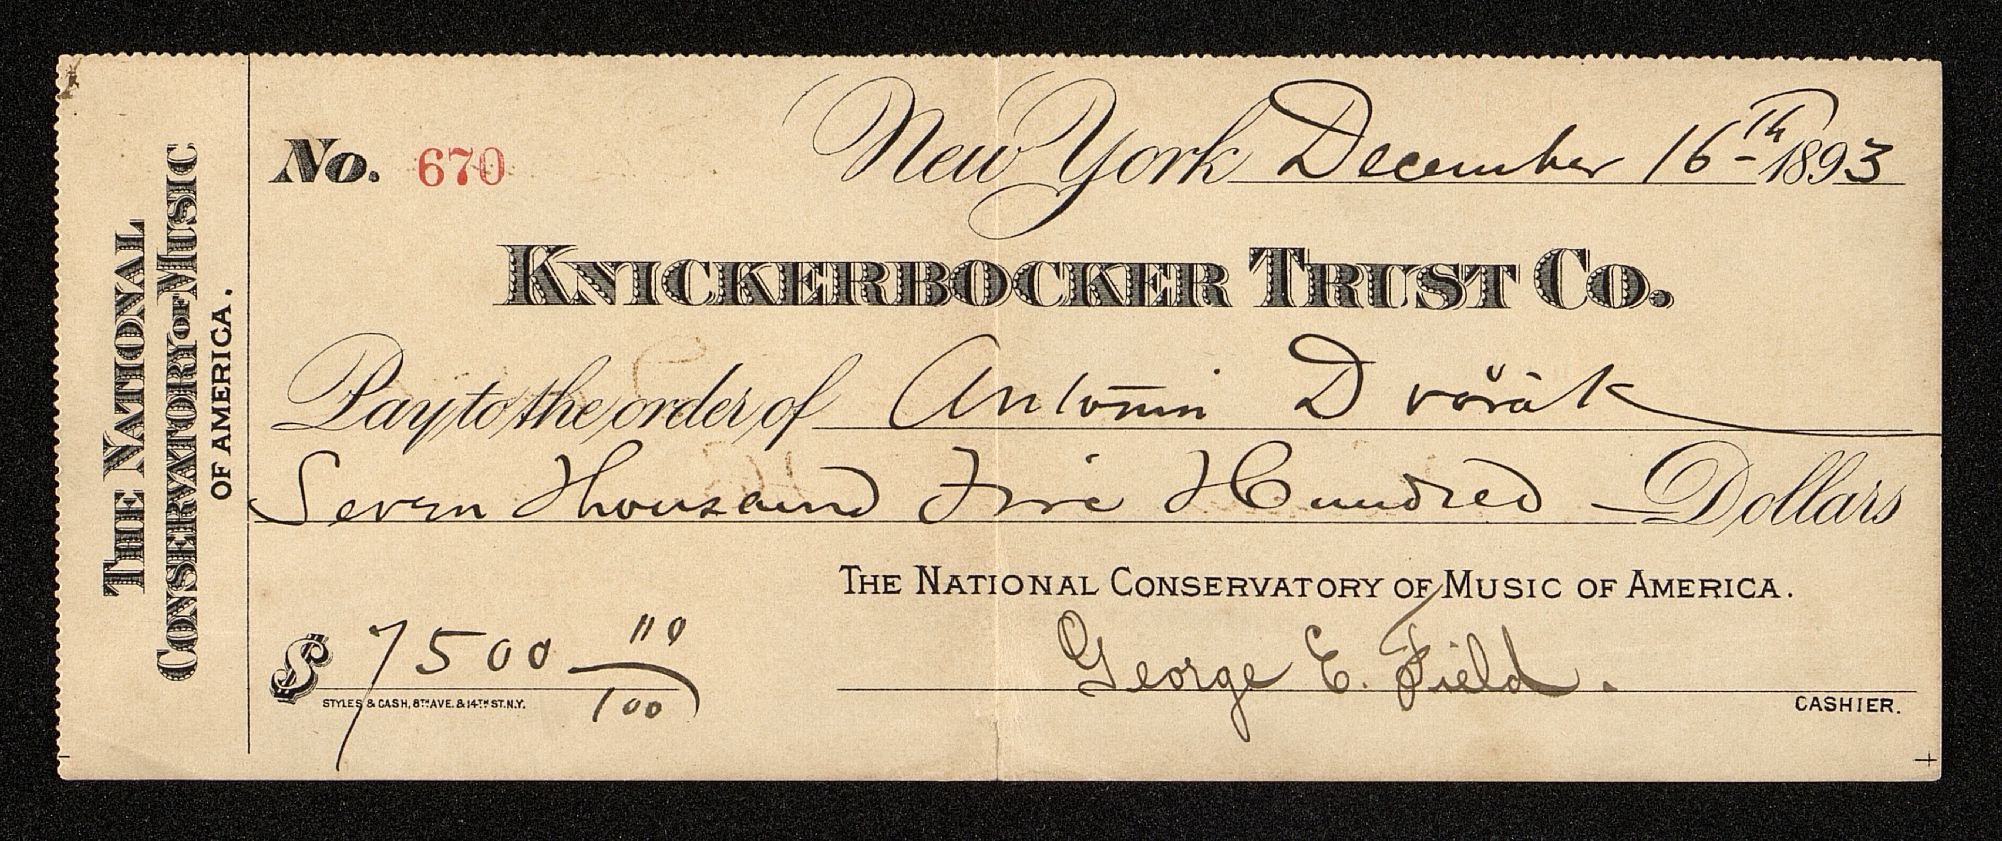 THE NATIONAL
CONSERVATORY OF MUSIC
OF AMERICA.
No. 670
New York December 16th 1893
KNICKERBOCKER TRUST CO.
Pay to the order of Antonin Dvořàk
Seven Thousand Five Hundred — Dollars
THE NATIONAL CONSERVATORY OF MUSIC OF AMERICA.
$ 7500 00/100
George E. Field.
STYLES & CASH, 8TH AVE. & 14TH ST. N.Y.
CASHIER.